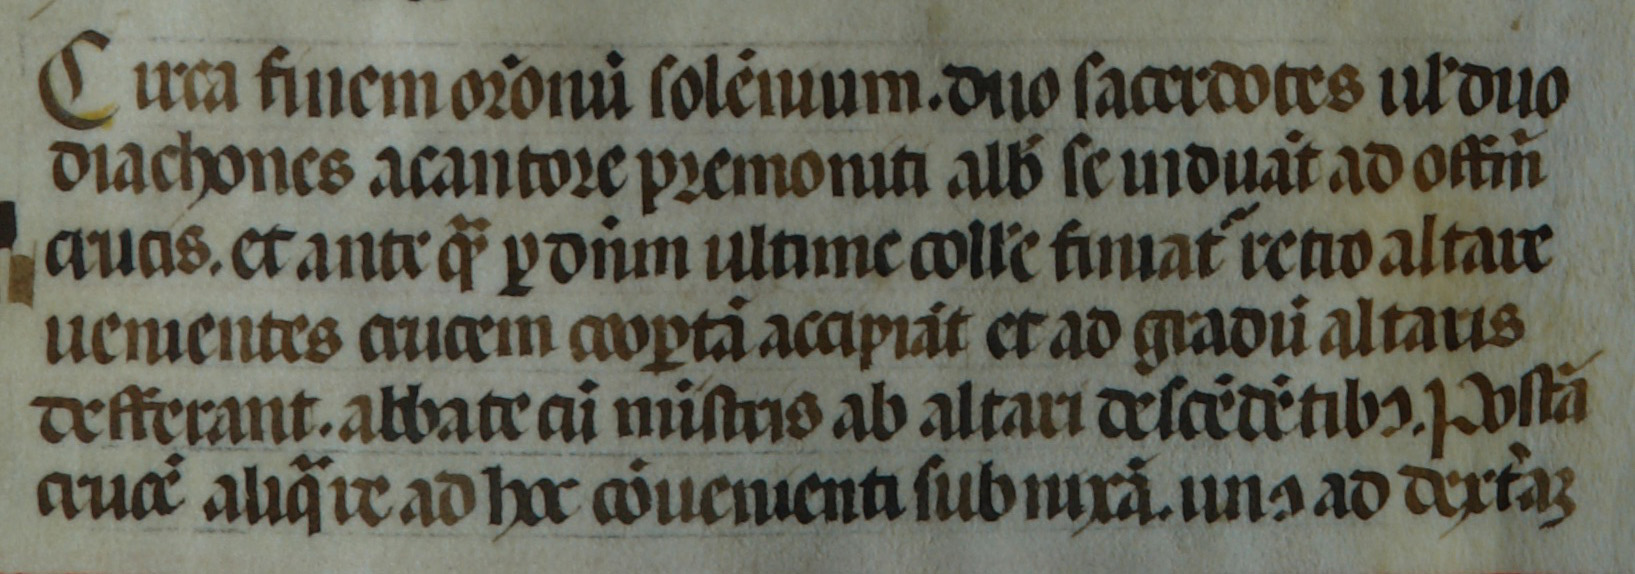 Circa finem or̄onū solēnium. duo sacerdotes ul̄ duo
diachones a cantore premoniti alb̄ se induāt ad offm̄
crucis. et ante qͣꝫ ꝑ dn̄m ultime coll̄e finiat᷑ retro altare
uenientes crucem coopꝑtā accipiāt et ad gradū altaris
defferant. abbate cū mīstris ab altari descēdētibꝰ. Postā
crucē aliqͣ re ad hoc cōuenienti subnixā. unꝰ ad dext̄aꝫ